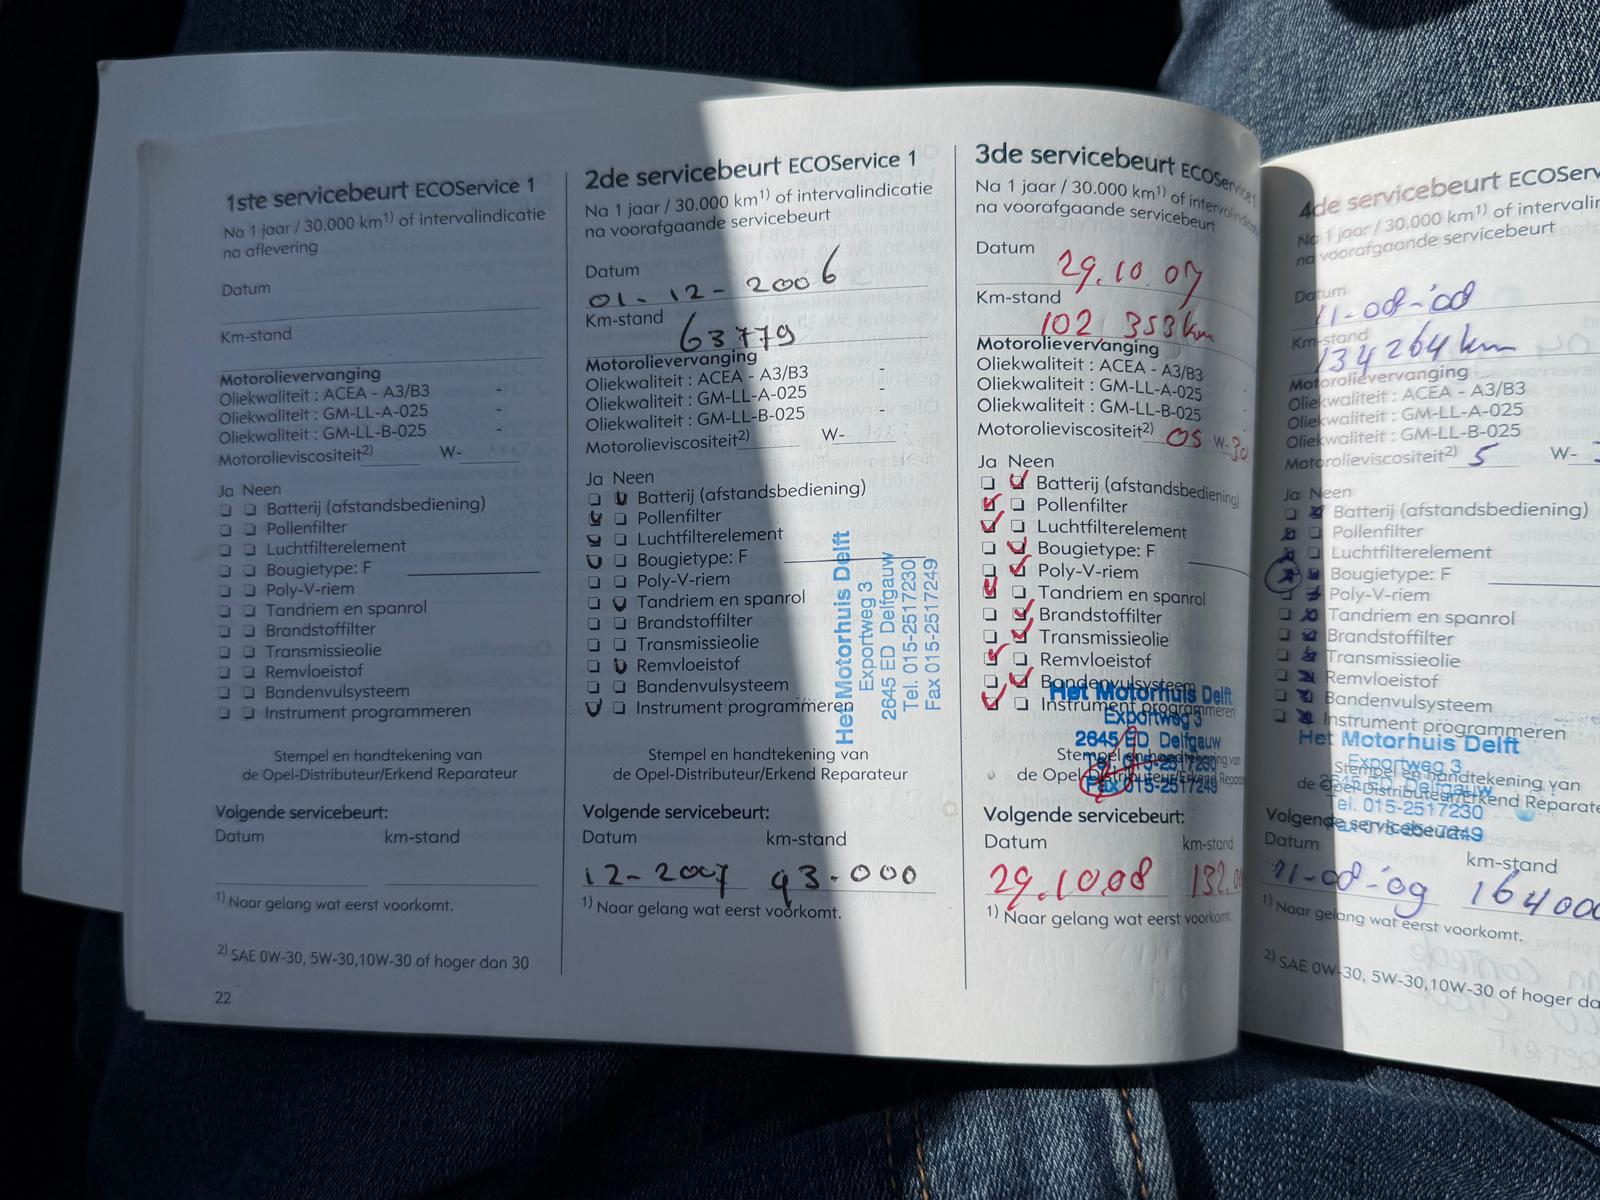 1ste servicebeurt ECOService 1
Na 1 jaar / 30.000 km1) of intervalindicatie
na aflevering
Datum
Km-stand
Motorolievervanging
Oliekwaliteit : ACEA - A3/B3 -
Oliekwaliteit : GM-LL-A-025 -
Oliekwaliteit : GM-LL-B-025 -
Motorolieviscositeit2) W-
Ja Neen
Batterij (afstandsbediening)
Pollenfilter
Luchtfilterelement
Bougietype: F
Poly-V-riem
Tandriem en spanrol
Brandstoffilter
Transmissieolie
Remvloeistof
Bandenvulsysteem
Instrument programmeren
Stempel en handtekening van
de Opel-Distributeur/Erkend Reparateur
Volgende servicebeurt:
Datum km-stand
1) Naar gelang wat eerst voorkomt.
2) SAE 0W-30, 5W-30,10W-30 of hoger dan 30
22
2de servicebeurt ECOService 1
Na 1 jaar / 30.000 km1) of intervalindicatie
na voorafgaande servicebeurt
Datum
01-12-2006
Km-stand 63779
Motorolievervanging
Oliekwaliteit : ACEA - A3/B3 -
Oliekwaliteit : GM-LL-A-025
Oliekwaliteit : GM-LL-B-025 -
Motorolieviscositeit2) W-
Ja Neen
Batterij (afstandsbediening)
Pollenfilter
Luchtfilterelement
Bougietype: F
Poly-V-riem
Tandriem en spanrol
Brandstoffilter
Transmissieolie
Remvloeistof
Bandenvulsysteem
Instrument programmeren
Het Motorhuis Delft
Exportweg 3
2645 ED Delfgauw
Tel. 015-2517230
Fax 015-2517249
Stempel en handtekening van
de Opel-Distributeur/Erkend Reparateur
Volgende servicebeurt:
Datum km-stand
12-2007 93.000
1) Naar gelang wat eerst voorkomt.
3de servicebeurt ECOService 1
Na 1 jaar / 30.000 km1) of intervalindicatie
na voorafgaande servicebeurt
Datum 29.10.07
Km-stand
102 353km
Motorolievervanging
Oliekwaliteit : ACEA - A3/B3
Oliekwaliteit : GM-LL-A-025
Oliekwaliteit : GM-LL-B-025
Motorolieviscositeit2) 05 W-30
Ja Neen
Batterij (afstandsbediening)
Pollenfilter
Luchtfilterelement
Bougietype: F
Poly-V-riem
Tandriem en spanrol
Brandstoffilter
Transmissieolie
Remvloeistof
Bandenvulsysteem
Instrument programmeren
Het Motorhuis Delft
Exportweg 3
2645 ED Delfgauw
Tel. 015-2517230
Fax 015-2517249
Stempel en handtekening van
de Opel-Distributeur/Erkend
Volgende servicebeurt:
Datum km-stand
29.10.08 132.0
1) Naar gelang wat eerst voorkomt.
4de servicebeurt ECOSer
Na 1 jaar / 30.000 km1) of
na voorafgaande servicebeurt
Datum
11-08-'08
Km-stand
134264km
Motorolievervanging
Oliekwaliteit : ACEA - A3/B3
Oliekwaliteit : GM-LL-A-025
Oliekwaliteit : GM-LL-B-025
Motorolieviscositeit2) 5 W-
Ja Neen
Batterij (afstandsbediening)
Pollenfilter
Luchtfilterelement
Bougietype: F
Poly-V-riem
Tandriem en spanrol
Brandstoffilter
Transmissieolie
Remvloeistof
Bandenvulsysteem
Instrument programmeren
Het Motorhuis Delft
Exportweg 3
2645 ED Delfgauw
Tel. 015-2517230
Fax 015-2517249
Stempel en handtekening van
de Opel-Distributeur/Erkend Reparate
Volgende servicebeurt:
Datum km-stand
11-08-'09 164000
1) Naar gelang wat eerst voorkomt.
2) SAE 0W-30, 5W-30,10W-30 of hoger da